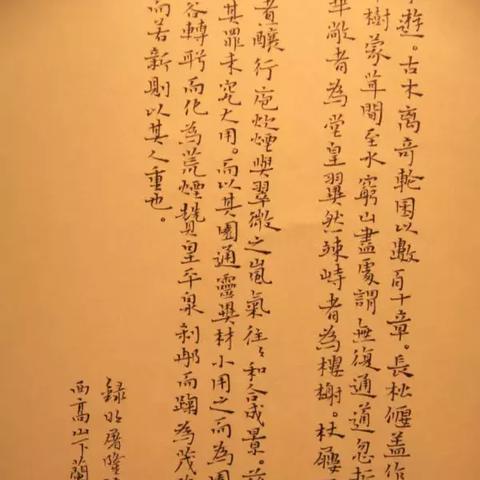 遊。古木离奇輪囷以數百十章。長松偃蓋作
樹蒙茸間至水窮山盡處謂無復通道忽
華敞者為堂皇翼然竦峙者為樓榭。杖屨
者釀行庖炊煙與翠微之嵐氣往〻和合成景。
其罪未究大用。而以其圜通靈異材小用之而為園
谷轉眄而化為荒煙贊皇平泉剎那而鞠為茂
而若新則以其人重也。
錄明屠隆
西高山下蘭